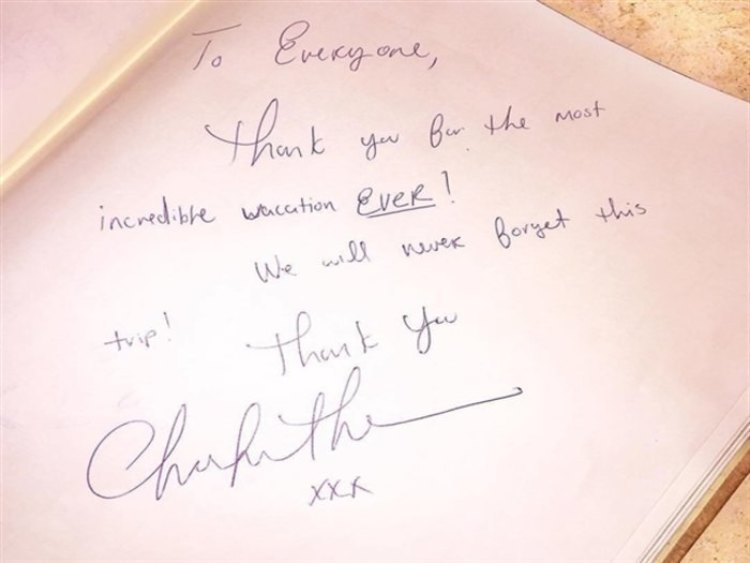 To Everyone,
Thank you for the most
incredible vacation Ever!
We will never forget this
trip! Thank you
xxx